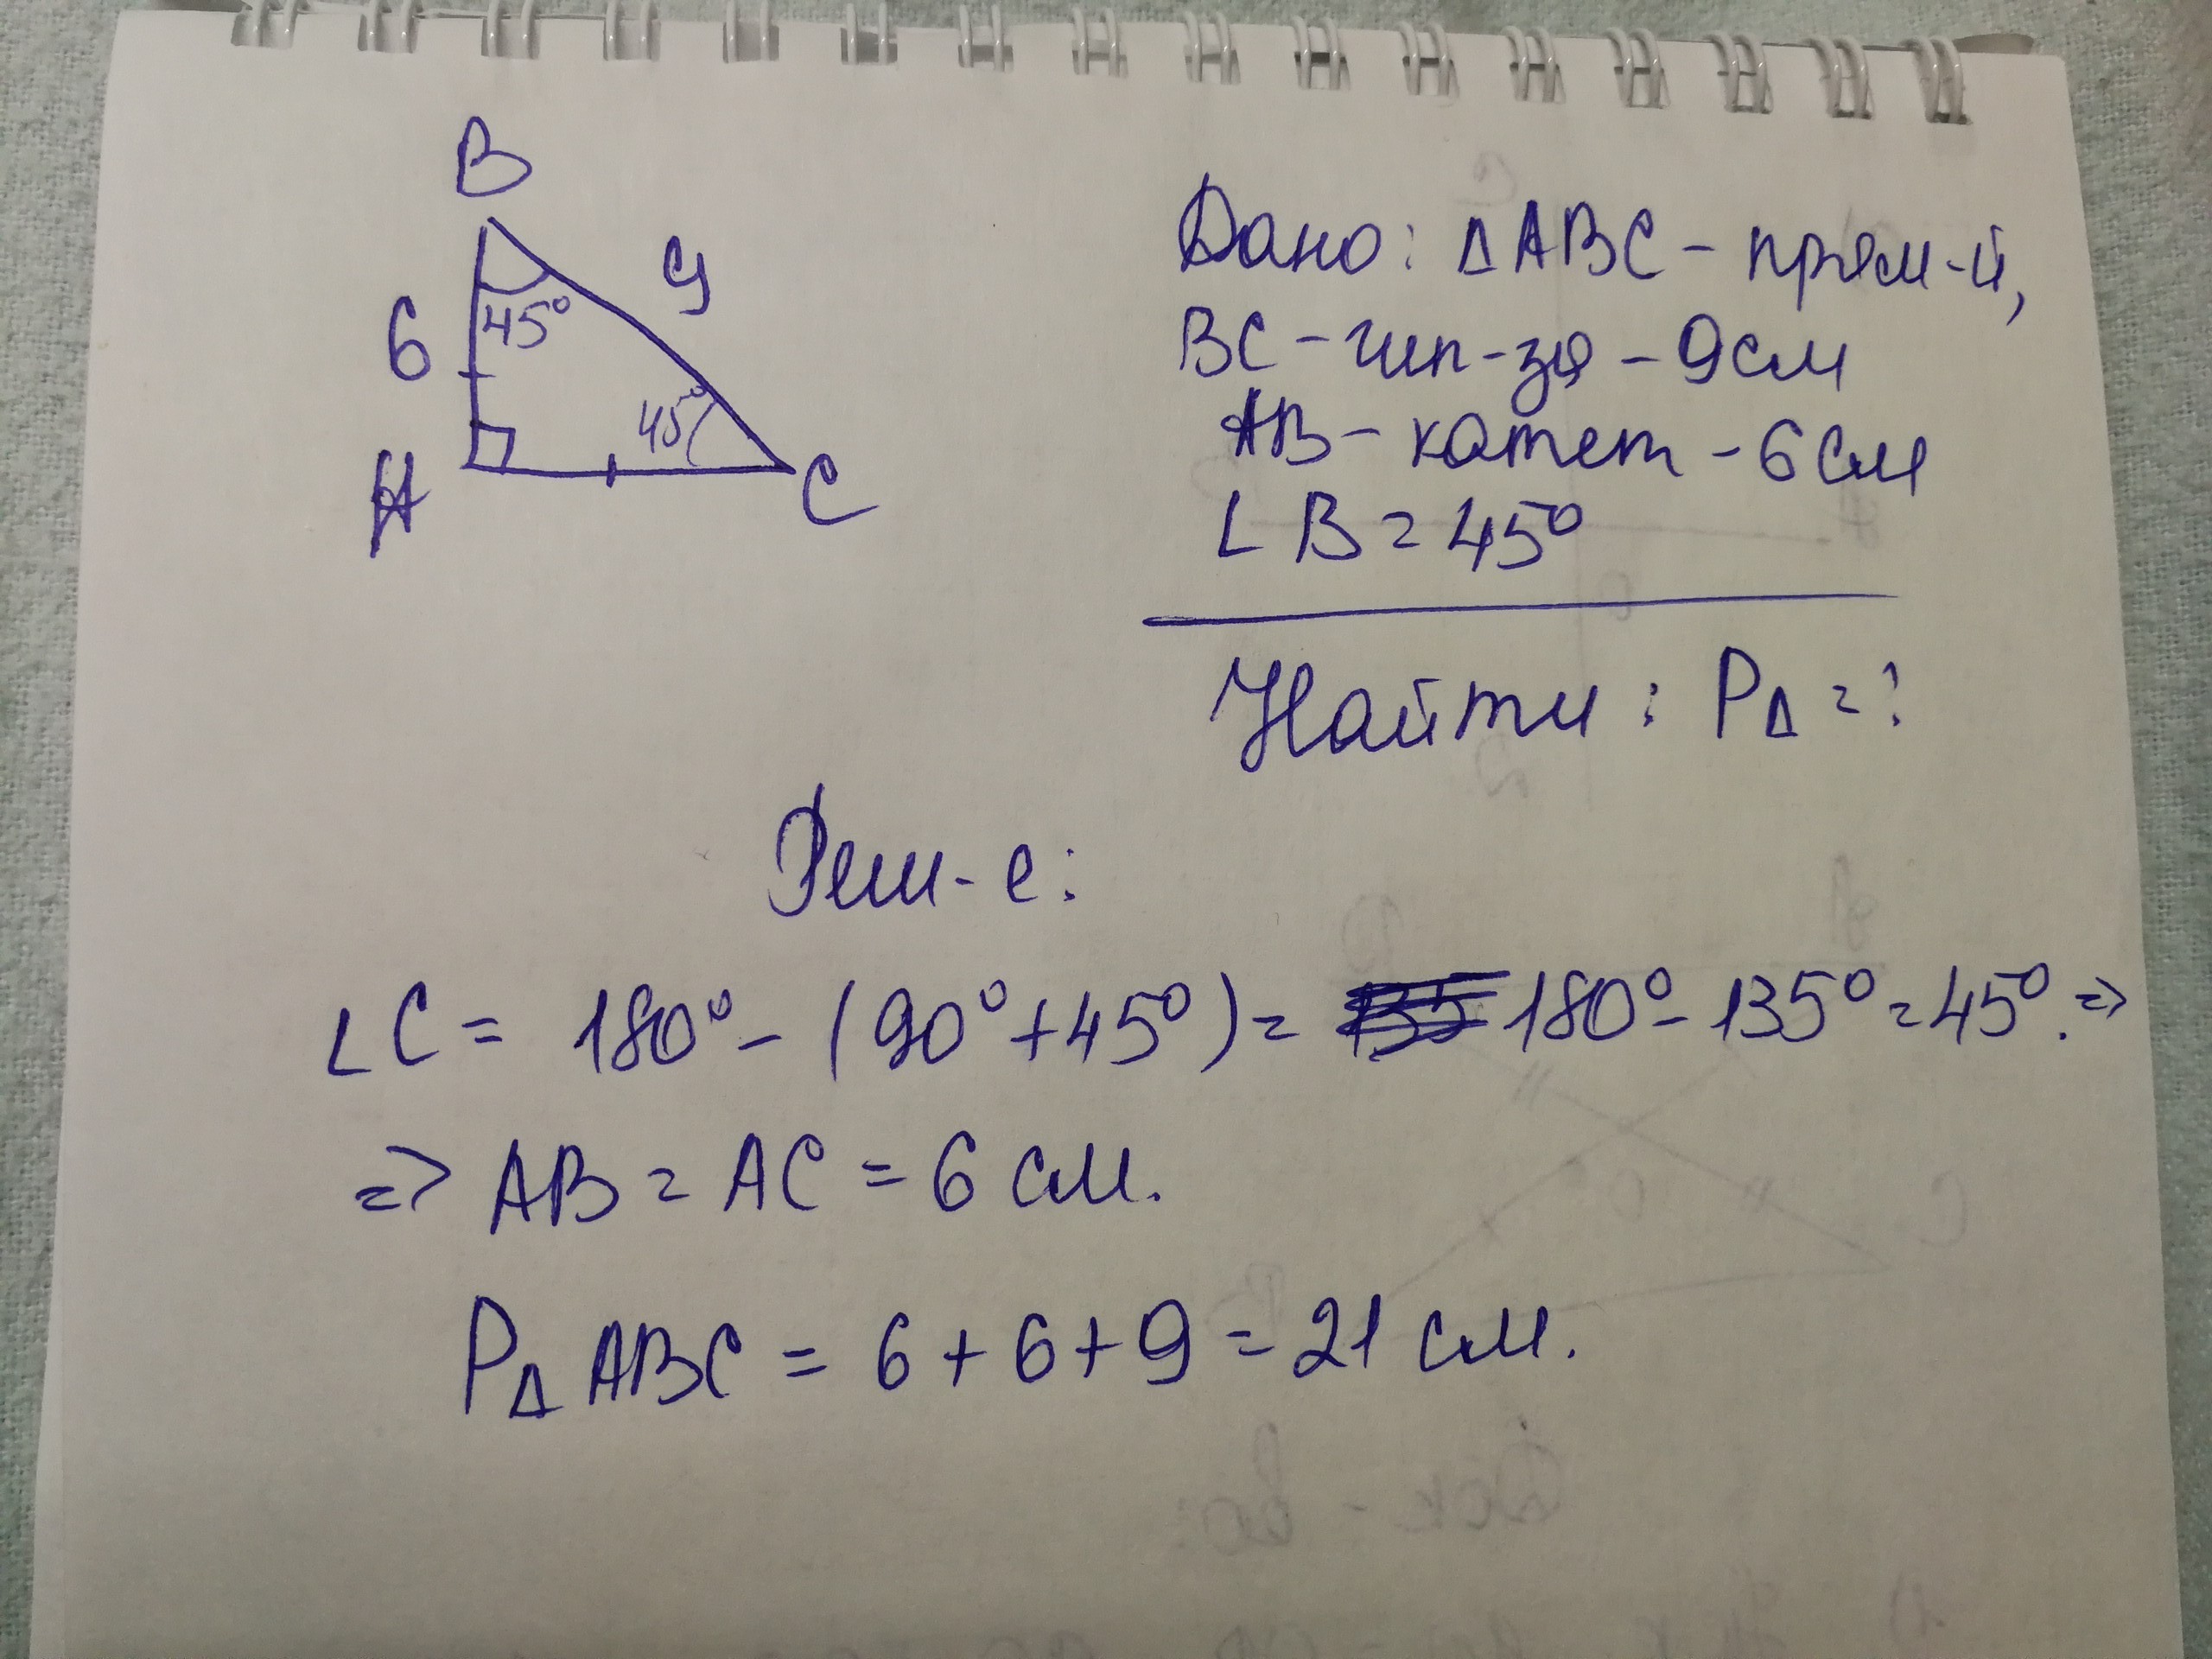 B
9
45°
6
45°
A
C
Дано: ΔABC - прям-й,
BC - гип-за - 9 см
AB - катет - 6 см
∠B = 45°
Найти: PΔ = ?
Реш-е:
∠C = 180° - (90° + 45°) = 180° - 135° = 45°. =>
=> AB = AC = 6 см.
PΔ ABC = 6 + 6 + 9 = 21 см.